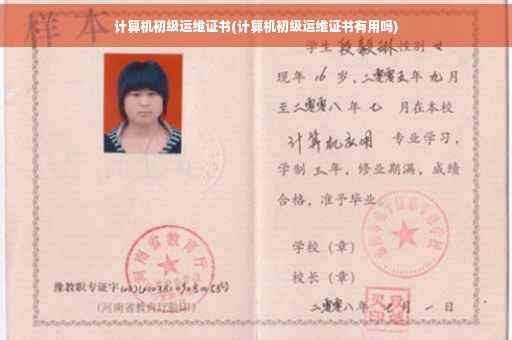 样本
计算机初级运维证书(计算机初级运维证书有用吗)
学生段毅琳性别女
现年16岁,二零零五年九月
至二零零八年七月在本校
计算机应用 专业学习,
学制三年,修业期满,成绩
合格,准予毕业
学校(章)
校长(章)
二零零八年七月一日
河南省教育厅
豫教职专证字
(河南省教育厅验印)